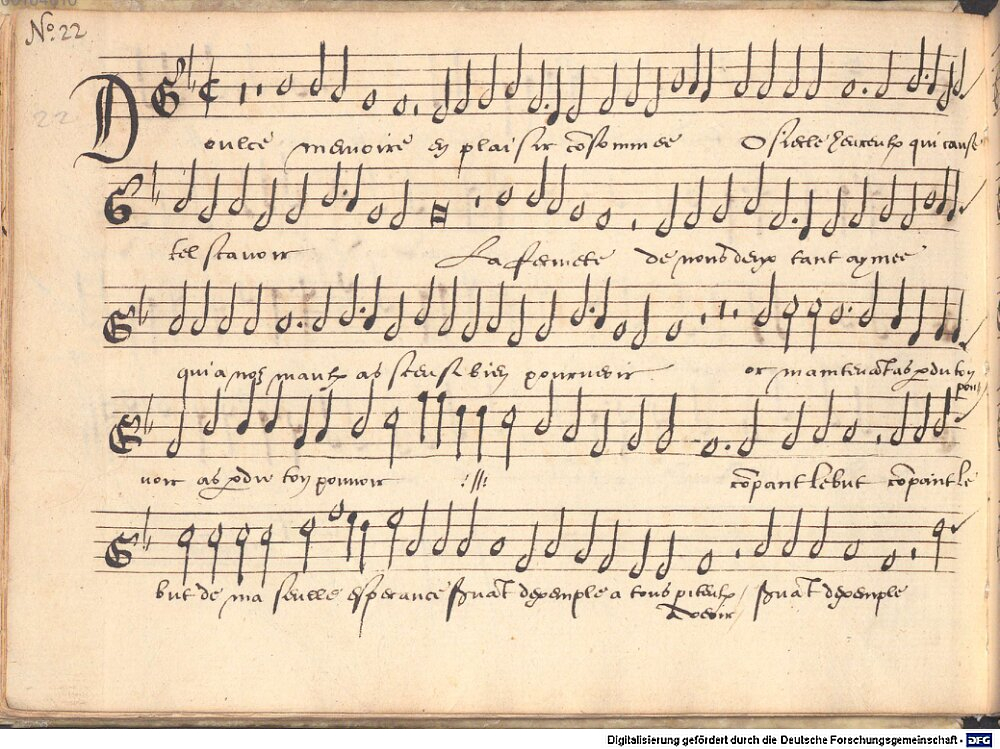 No: 22
22
Doulce memoire en plaisir cõsommee O siecle heureulx qui cause
tel scavoir La fermete de nous deux tant aymee
qui a noz maulx as sceu si bien pourveoir or maintenãt as pdu ton
pouvoir as pdu ton pouvoir :///:
rõpant le but rõpant le
but de ma seulle esperance servãt dexemple a tous piteulx
a veoir / servãt dexemple
Digitalisierung gefördert durch die Deutsche Forschungsgemeinschaft - DFG